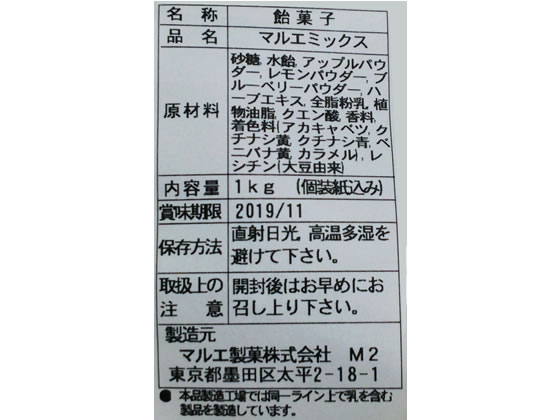 名称 飴菓子
品名 マルエミックス
原材料 砂糖, 水飴, アップルパウ
ダー, レモンパウダー, ブ
ルーベリーパウダー, ハ
ーブエキス, 全脂粉乳, 植
物油脂, クエン酸, 香料,
着色料(アカキャベツ, ク
チナシ黄, クチナシ青, ベ
ニバナ黄, カラメル), レ
シチン(大豆由来)
内容量 1kg (個装紙込み)
賞味期限 2019/11
保存方法 直射日光, 高温多湿を
避けて下さい。
取扱上の注意 開封後はお早めにお
召し上り下さい。
製造元
マルエ製菓株式会社 M2
東京都墨田区太平2-18-1
● 本品製造工場では同一ライン上で乳を含む
製品を製造しています。